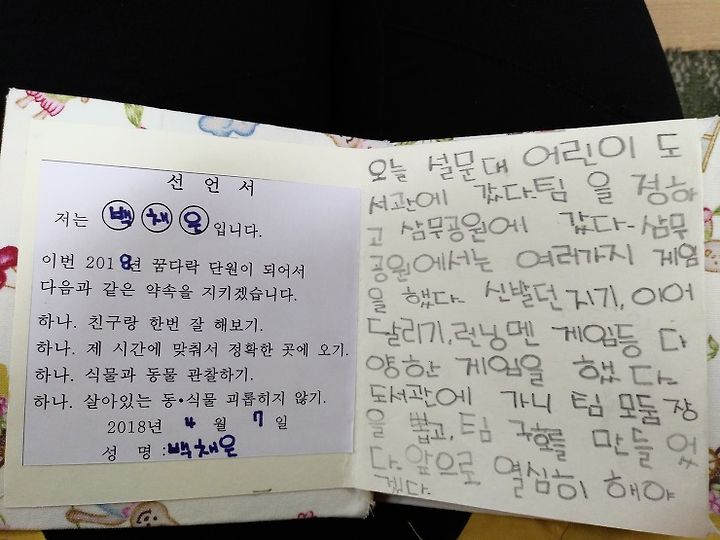 선 언 서
저는 백 채 은 입니다.
이번 2018년 꿈다락 단원이 되어서
다음과 같은 약속을 지키겠습니다.
하나. 친구랑 한번 잘 해보기.
하나. 제 시간에 맞춰서 정확한 곳에 오기.
하나. 식물과 동물 관찰하기.
하나. 살아있는 동•식물 괴롭히지 않기.
2018년 4 월 7 일
성 명 :백채은
오늘 설문대 어린이 도
서관에 갔다. 팀 을 정하
고 삼무공원에 갔다. 삼무
공원에서는 여러가지 게임
을 했다. 신발던지기, 이어
달리기, 런닝멘 게임등 다
양한 게임을 했다.
도서관에 가니 팀 모둠장
을 뽑고, 팀 구호를 만들었
다. 앞으로 열심히 해야
겠다.